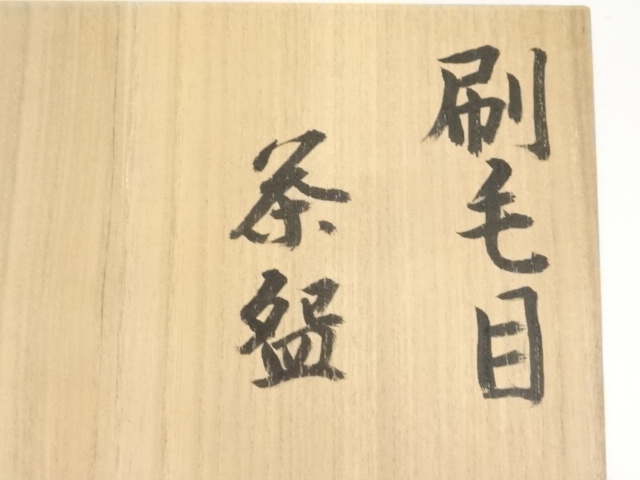 刷毛目
茶盌